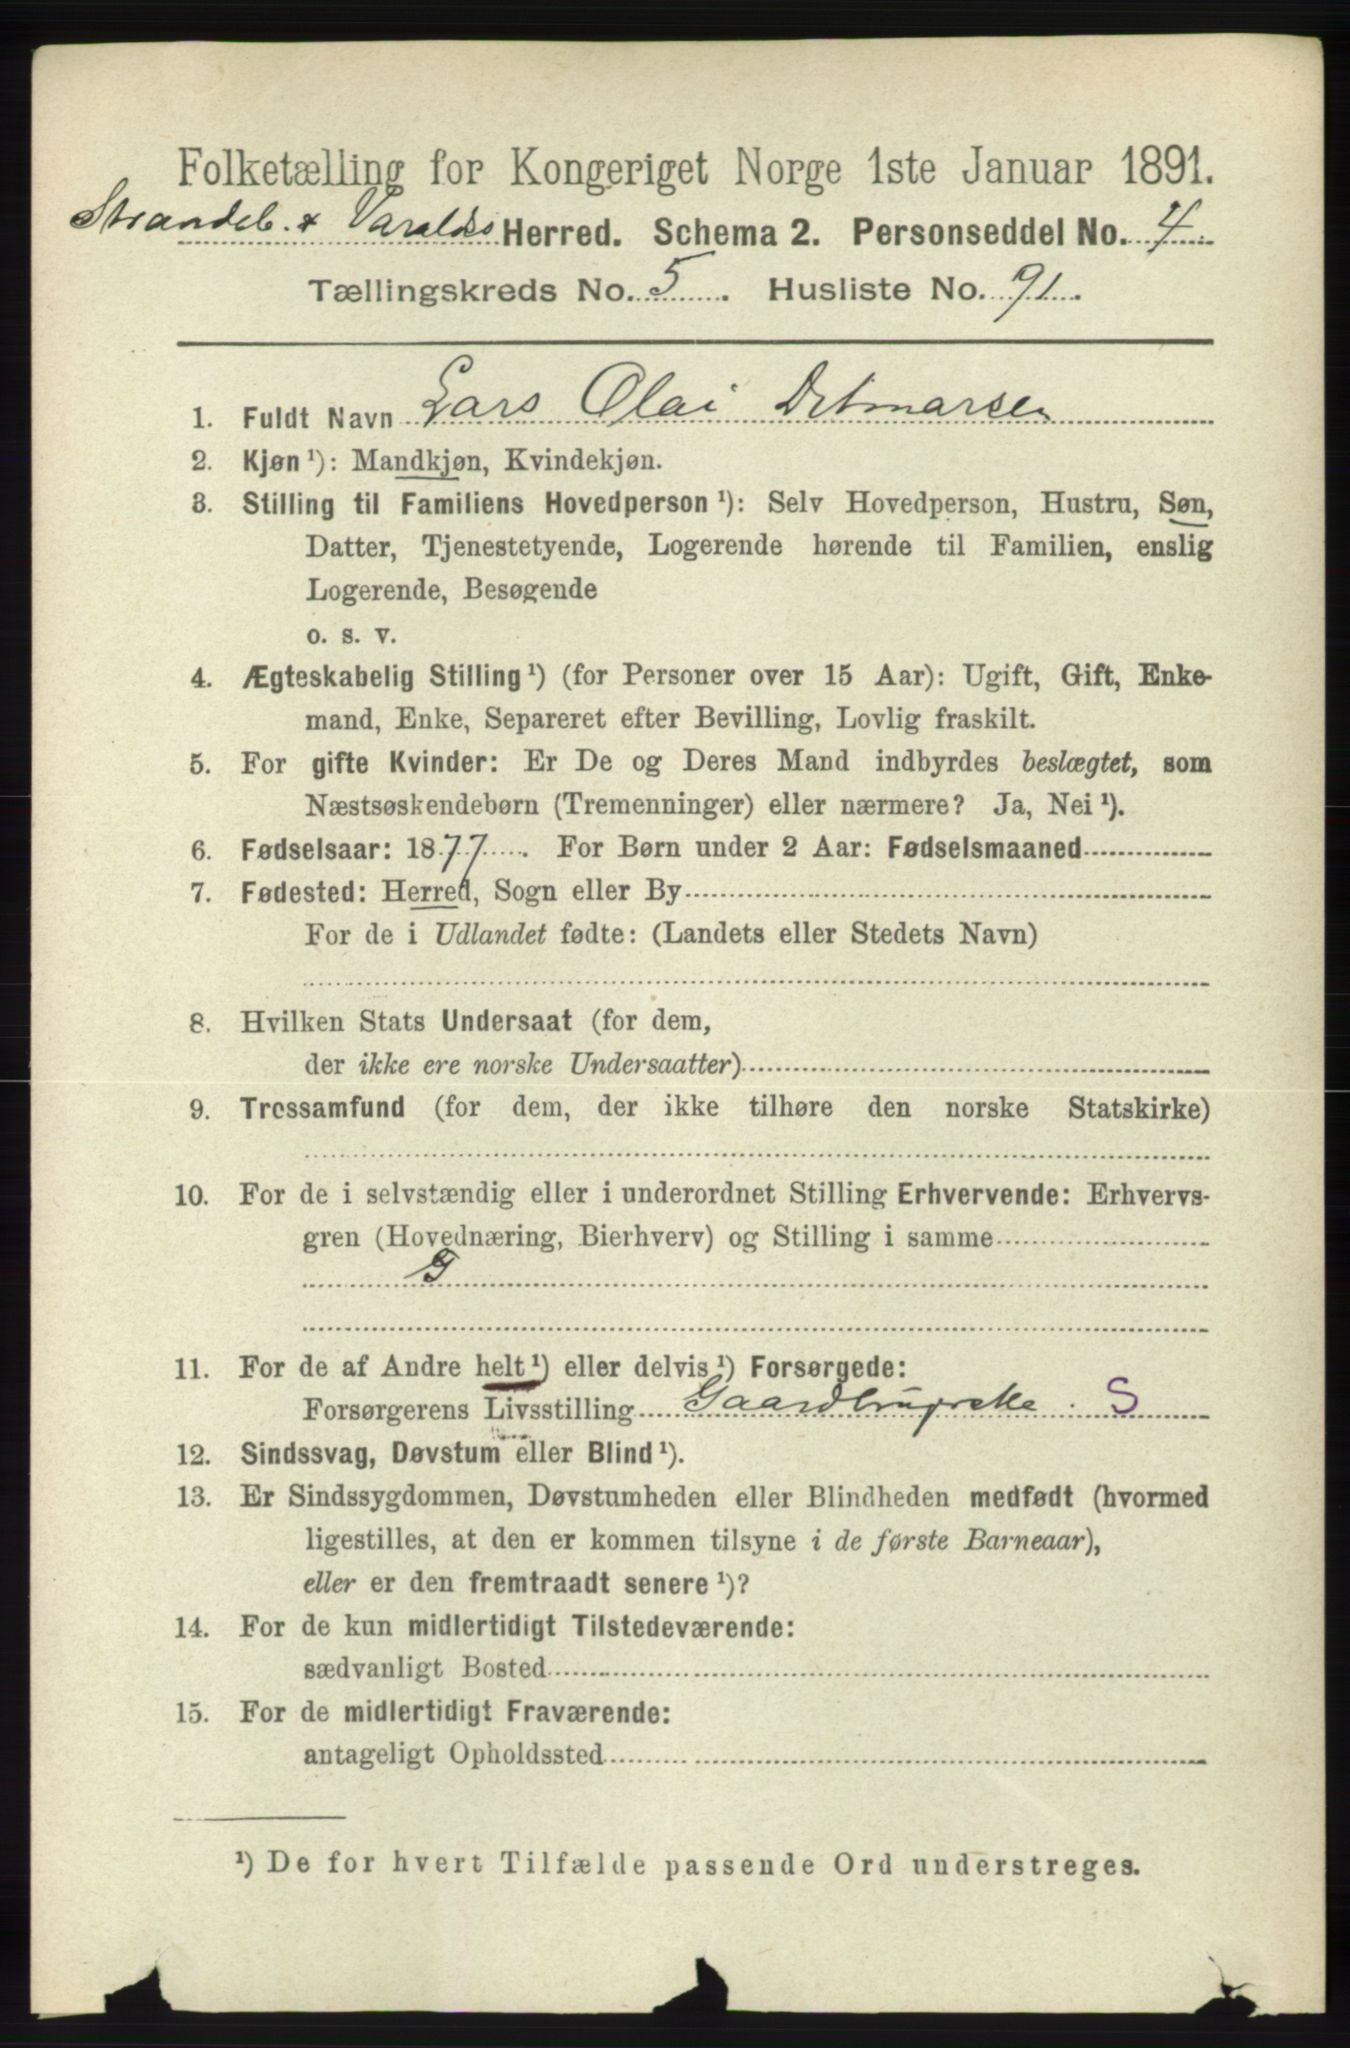 Folketælling for Kongeriget Norge 1ste Januar 1891.
Strandeb. & Varaldsø Herred. Schema 2. Personseddel No. 4
Tællingskreds No. 5. Husliste No. 91.
1. Fuldt Navn Lars Olai Detmarsen
2. Kjøn¹): Mandkjøn, Kvindekjøn.
3. Stilling til Familiens Hovedperson¹): Selv Hovedperson, Hustru, Søn,
Datter, Tjenestetyende, Logerende hørende til Familien, enslig
Logerende, Besøgende
o. s. v.
4. Ægteskabelig Stilling¹) (for Personer over 15 Aar): Ugift, Gift, Enke-
mand, Enke, Separeret efter Bevilling, Lovlig fraskilt.
5. For gifte Kvinder: Er De og Deres Mand indbyrdes beslægtet, som
Næstsøskendebørn (Tremenninger) eller nærmere? Ja, Nei¹).
6. Fødselsaar: 1877. For Børn under 2 Aar: Fødselsmaaned
7. Fødested: Herred, Sogn eller By
For de i Udlandet fødte: (Landets eller Stedets Navn)
8. Hvilken Stats Undersaat (for dem,
der ikke ere norske Undersaatter)
9. Trossamfund (for dem, der ikke tilhøre den norske Statskirke)
10. For de i selvstændig eller i underordnet Stilling Erhvervende: Erhvervs-
gren (Hovednæring, Bierhverv) og Stilling i samme
G
11. For de af Andre helt¹) eller delvis¹) Forsørgede:
Forsørgerens Livsstilling S
12. Sindssvag, Døvstum eller Blind¹).
13. Er Sindssygdommen, Døvstumheden eller Blindheden medfødt (hvormed
ligestilles, at den er kommen tilsyne i de første Barneaar),
eller er den fremtraadt senere¹)?
14. For de kun midlertidigt Tilstedeværende:
sædvanligt Bosted
15. For de midlertidigt Fraværende:
antageligt Opholdssted
¹) De for hvert Tilfælde passende Ord understreges.